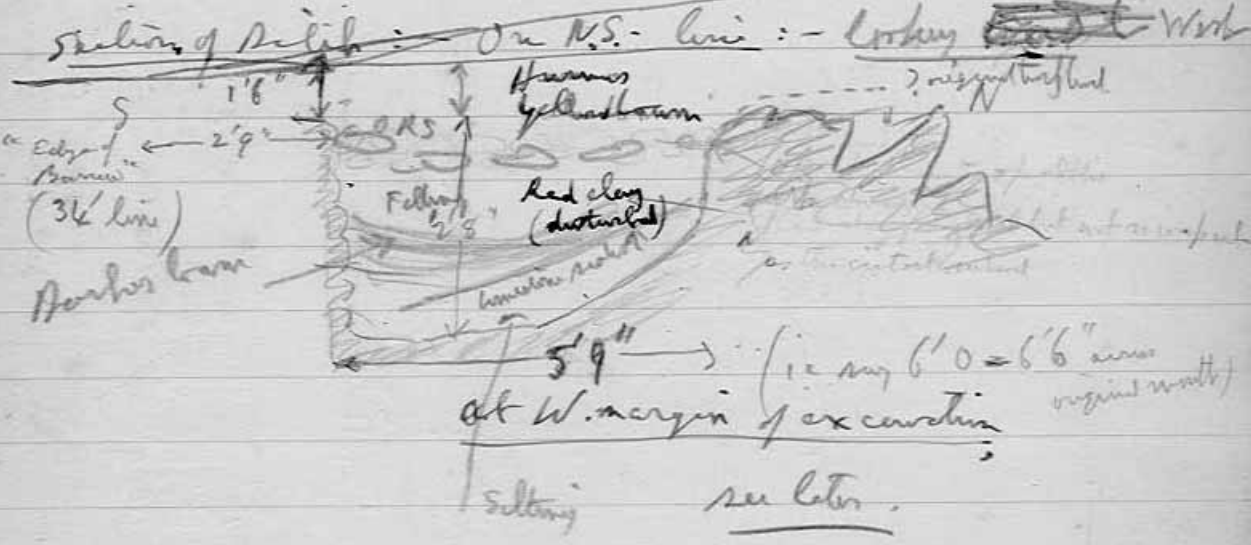 Section of Ditch :- On N.S.- line :- looking West
1'6"
Humus
yellow brown
? original turf level
S
N
"Edge of
Barrow"
2'9"
ORS
(34' line)
Filling
2'8"
Red clay
(disturbed)
Darker loam
limestone
5'9"
(i.e. say 6' 0 = 6'6" across
original mouth)
at W. margin of excavation
;
Silting
see later.